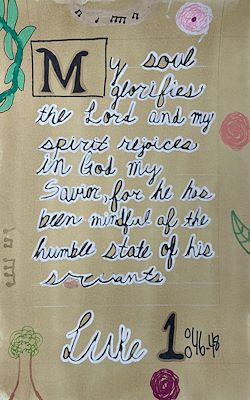 My soul
glorifies
the Lord and my
spirit rejoices
in God my
Savior, for he has
been mindful of the
humble state of his
servants
Luke 1:46-48